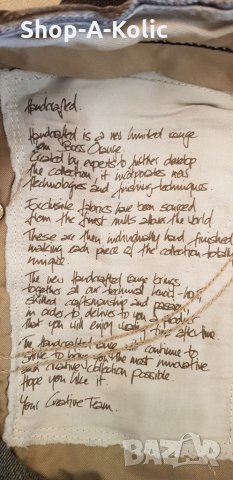 Shop-A-Kolic
Handcrafted.
Handcrafted is a new limited range
from Boss Orange
Created by experts to further develop
the collection, it incorporates new
technologies and finishing techniques.
Exclusive fabrics have been sourced
from the finest mills above the world
These are then individually hand finished
making each piece of the collection totally
unique.
The new Handcrafted range brings
together all our technical know-how
skilled craftsmanship and passion,
in order to deliver to you a product
that you will enjoy time after time
The Handcrafted range will continue to
strive to bring you the most innovative
and creative collection possible.
Hope you like it.
Your Creative Team.
BAZAR